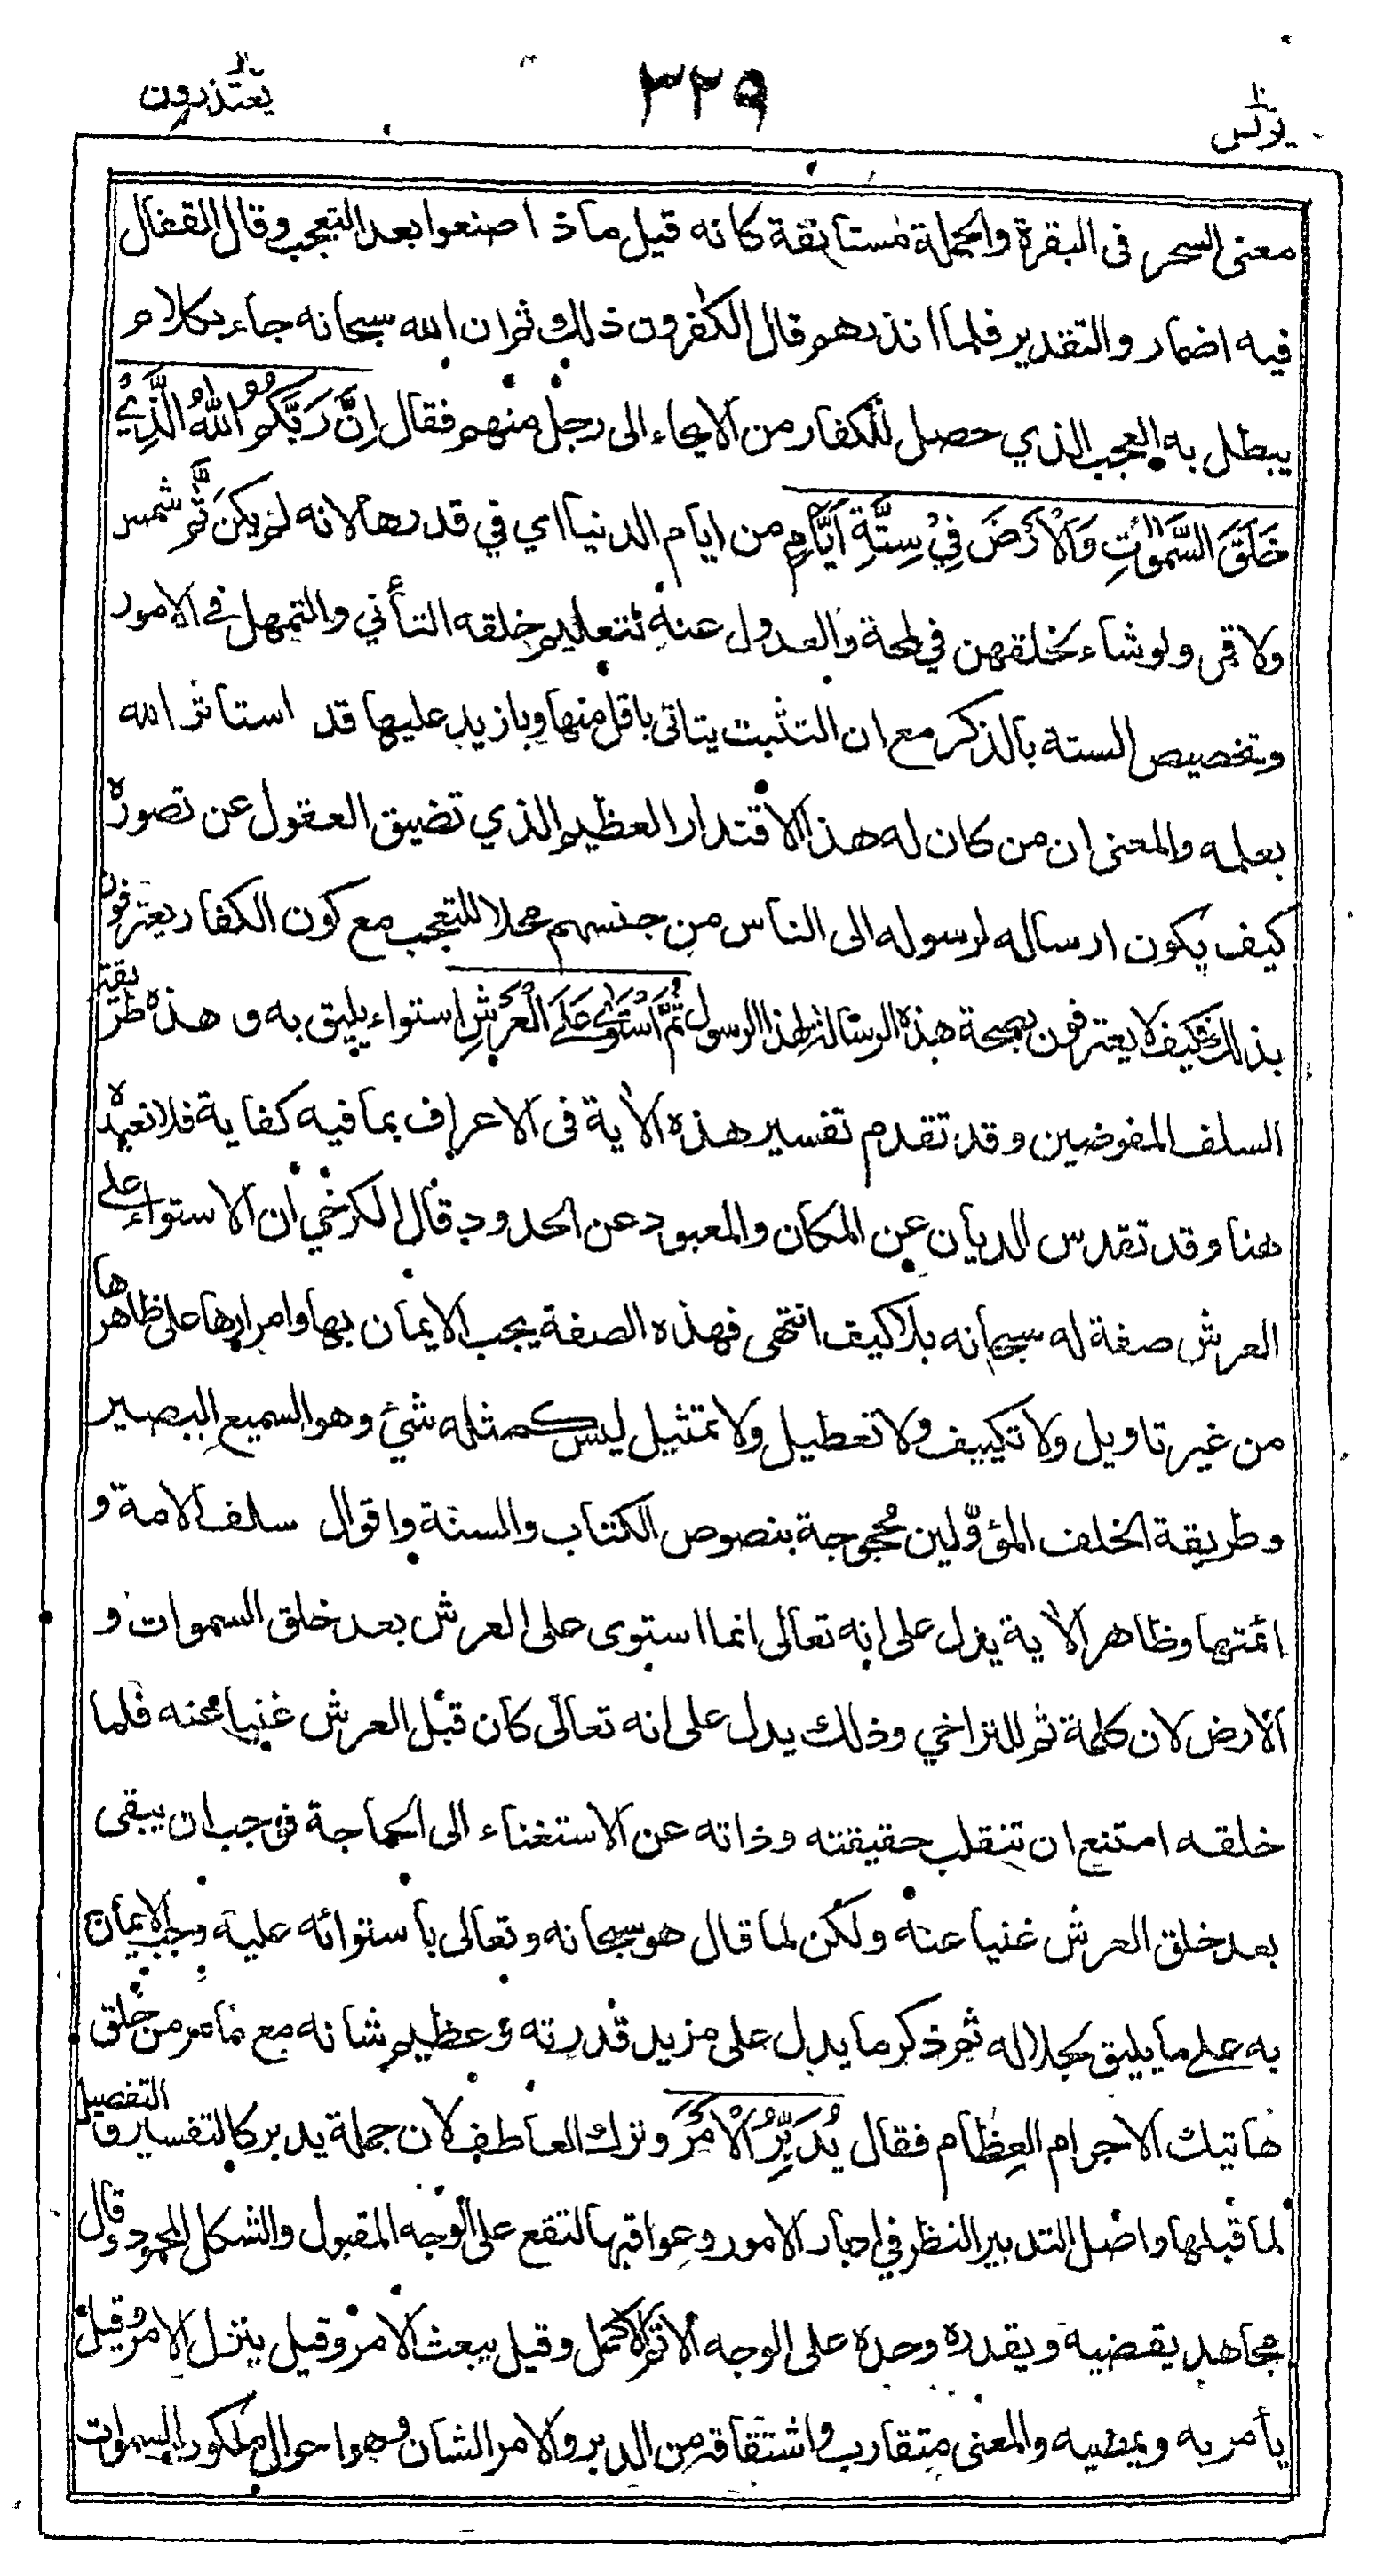 يعتذرون ١١
٣٢٩
يونس ١٠
معنى السحر فى البقرة والجملة مستانفة كانه قيل ماذا صنعوا بعد التعجب وقال القفال
فيه اضمار والتقدير فلما انذرهم قال الكفرون ذلك ثم ان الله سبحانه جاء بكلام
يبطل به العجب الذي حصل للكفار من الايحاء الى رجل منهم فقال اِنَّ رَبَّكُمُ اللهُ الَّذِيْ
خَلَقَ السَّمٰوٰتِ وَالْاَرْضَ فِيْ سِتَّةِ اَيَّامٍ من ايام الدنيا اي في قدرها لانه لم يكن ثَمَّ شمس
ولا قمر ولو شاء لخلقهن في لمحة والعدول عنه لتعليم خلقه التأني والتمهل في الامور
وتخصيص الستة بالذكر مع ان التثبت يتاتى باقل منها وبازيد عليها قد استاثر الله
بعلمه والمعنى ان من كان له هذا الاقتدار العظيم الذي تضيق العقول عن تصوره
كيف يكون ارساله لرسوله الى الناس من جنسهم محلا للتعجب مع كون الكفار يعترفون
بذلك فكيف لا يعترفون بصحة هذه الرسالة لهذا الرسول ثُمَّ اسْتَوٰى عَلَى الْعَرْشِ استواء يليق به وهذه طريقة
السلف المفوضين وقد تقدم تفسير هذه الاية فى الاعراف بما فيه كفاية فلا نعيده
هنا وقد تقدس الديان عن المكان والمعبود عن الحدود قال الكرخي ان الاستواء على
العرش صفة له سبحانه بلا كيف انتهى فهذه الصفة يجب الايمان بها وامرارها على ظاهرها
من غير تاويل ولا تكييف ولا تعطيل ولا تمثيل ليس كمثله شئ وهو السميع البصير
وطريقة الخلف المؤوّلين مُحجوجة بنصوص الكتاب والسنة واقوال سلف الامة و
ائمتها وظاهر الاية يدل على انه تعالى انما استوى على العرش بعد خلق السموات و
الارض لان كلمة ثم للتراخي وذلك يدل على انه تعالى كان قبل العرش غنيا عنه فلما
خلقه امتنع ان تنقلب حقيقته وذاته عن الاستغناء الى الحاجة فوجب ان يبقى
بعد خلق العرش غنيا عنه ولكن لما قال هو سبحانه وتعالى باستوائه عليه وجب الايمان
به على ما يليق بجلاله ثم ذكر ما يدل على مزيد قدرته وعظيم شانه مع ما مر من خلق
هاتيك الاجرام العِظام فقال يُدَبِّرُ الْاَمْرَ وترك العاطف لان جملة يدبر كالتفسير والتفصيل
لما قبلها واصل التدبير النظر في ادبار الامور وعواقبها لتقع على الوجه المقبول والشكل المحمود وقال
مجاهد يقضيه ويقدره وحده على الوجه الاتم الاكمل وقيل يبعث الامر وقيل ينزل الامر وقيل
يأمر به ويمضيه والمعنى متقارب واشتقاقه من الدبر والامر الشان وهو احوال ملكوت السموات